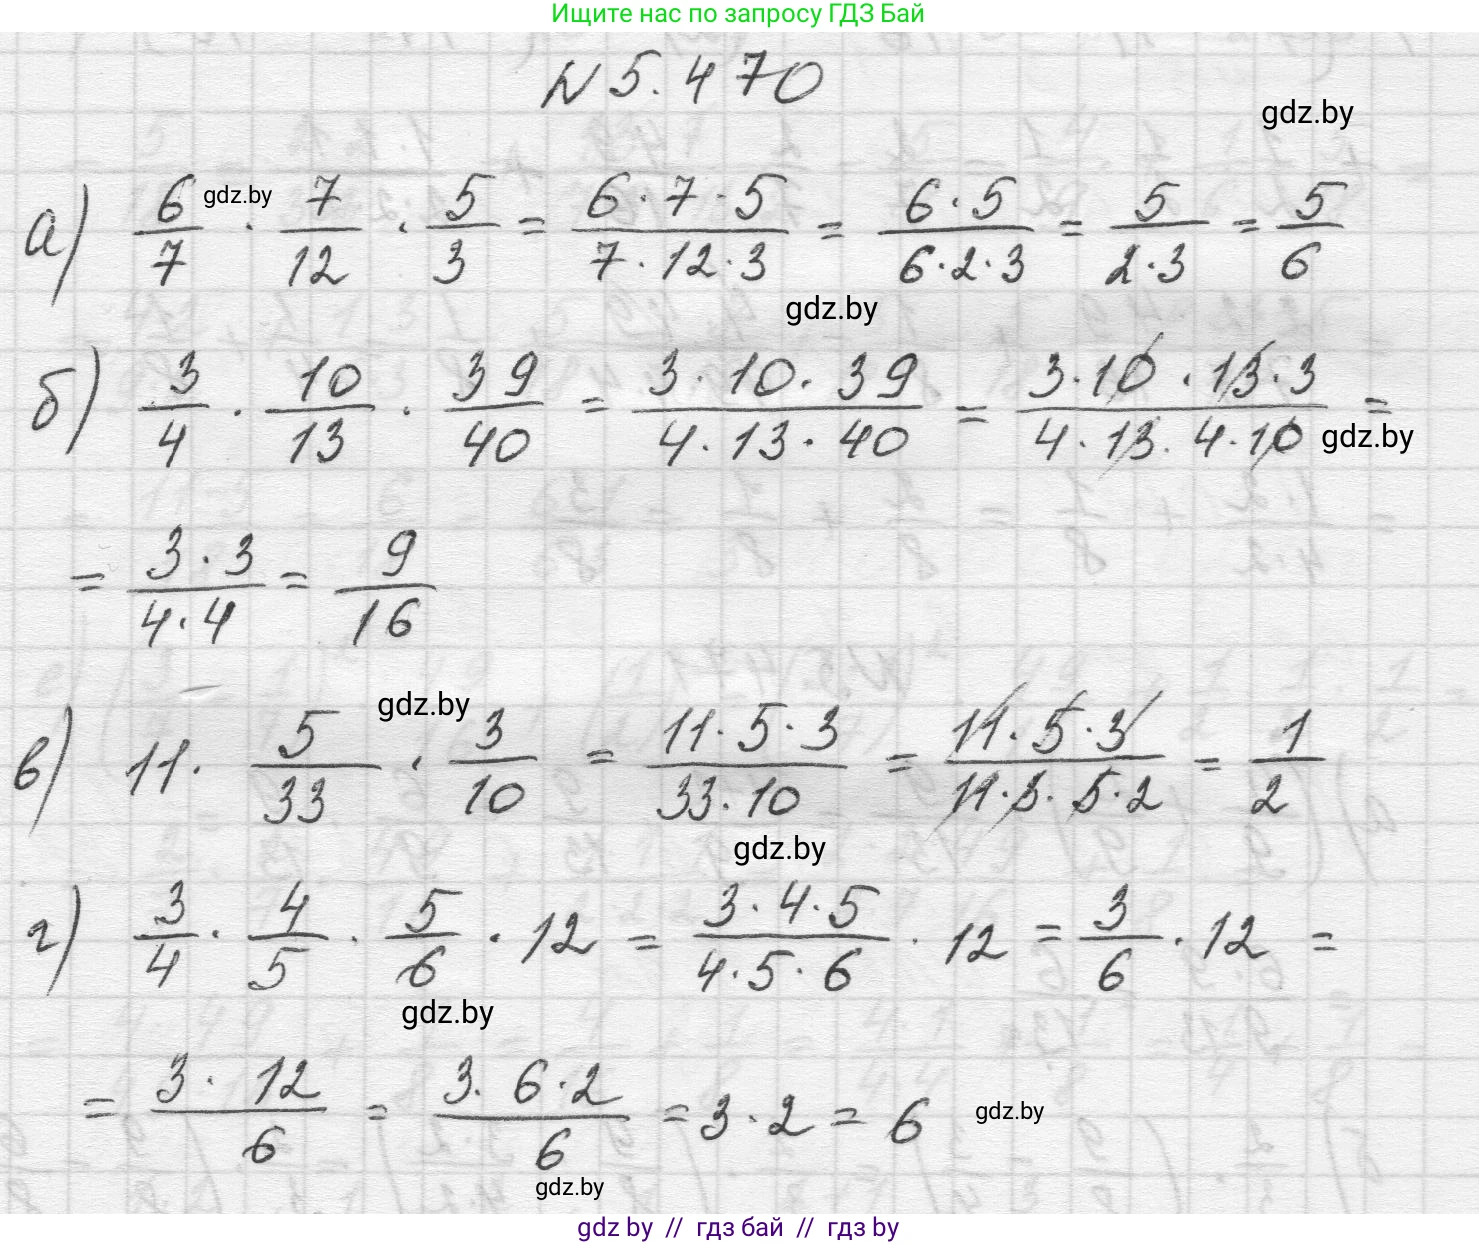 Ищите нас по запросу ГДЗ Бай
№ 5.470
gdz.by
а) 6/7 · 7/12 · 5/3 = (6·7·5)/(7·12·3) = (6·5)/(6·2·3) = 5/(2·3) = 5/6
gdz.by
gdz.by
б) 3/4 · 10/13 · 39/40 = (3·10·39)/(4·13·40) = (3·10·13·3)/(4·13·4·10) =
gdz.by
= (3·3)/(4·4) = 9/16
gdz.by
в) 11 · 5/33 · 3/10 = (11·5·3)/(33·10) = (11·5·3)/(11·3·5·2) = 1/2
gdz.by
г) 3/4 · 4/5 · 5/6 · 12 = (3·4·5)/(4·5·6) · 12 = 3/6 · 12 =
gdz.by
= (3·12)/6 = (3·6·2)/6 = 3·2 = 6
gdz.by
gdz.by
gdz by // гдз бай // гдз by